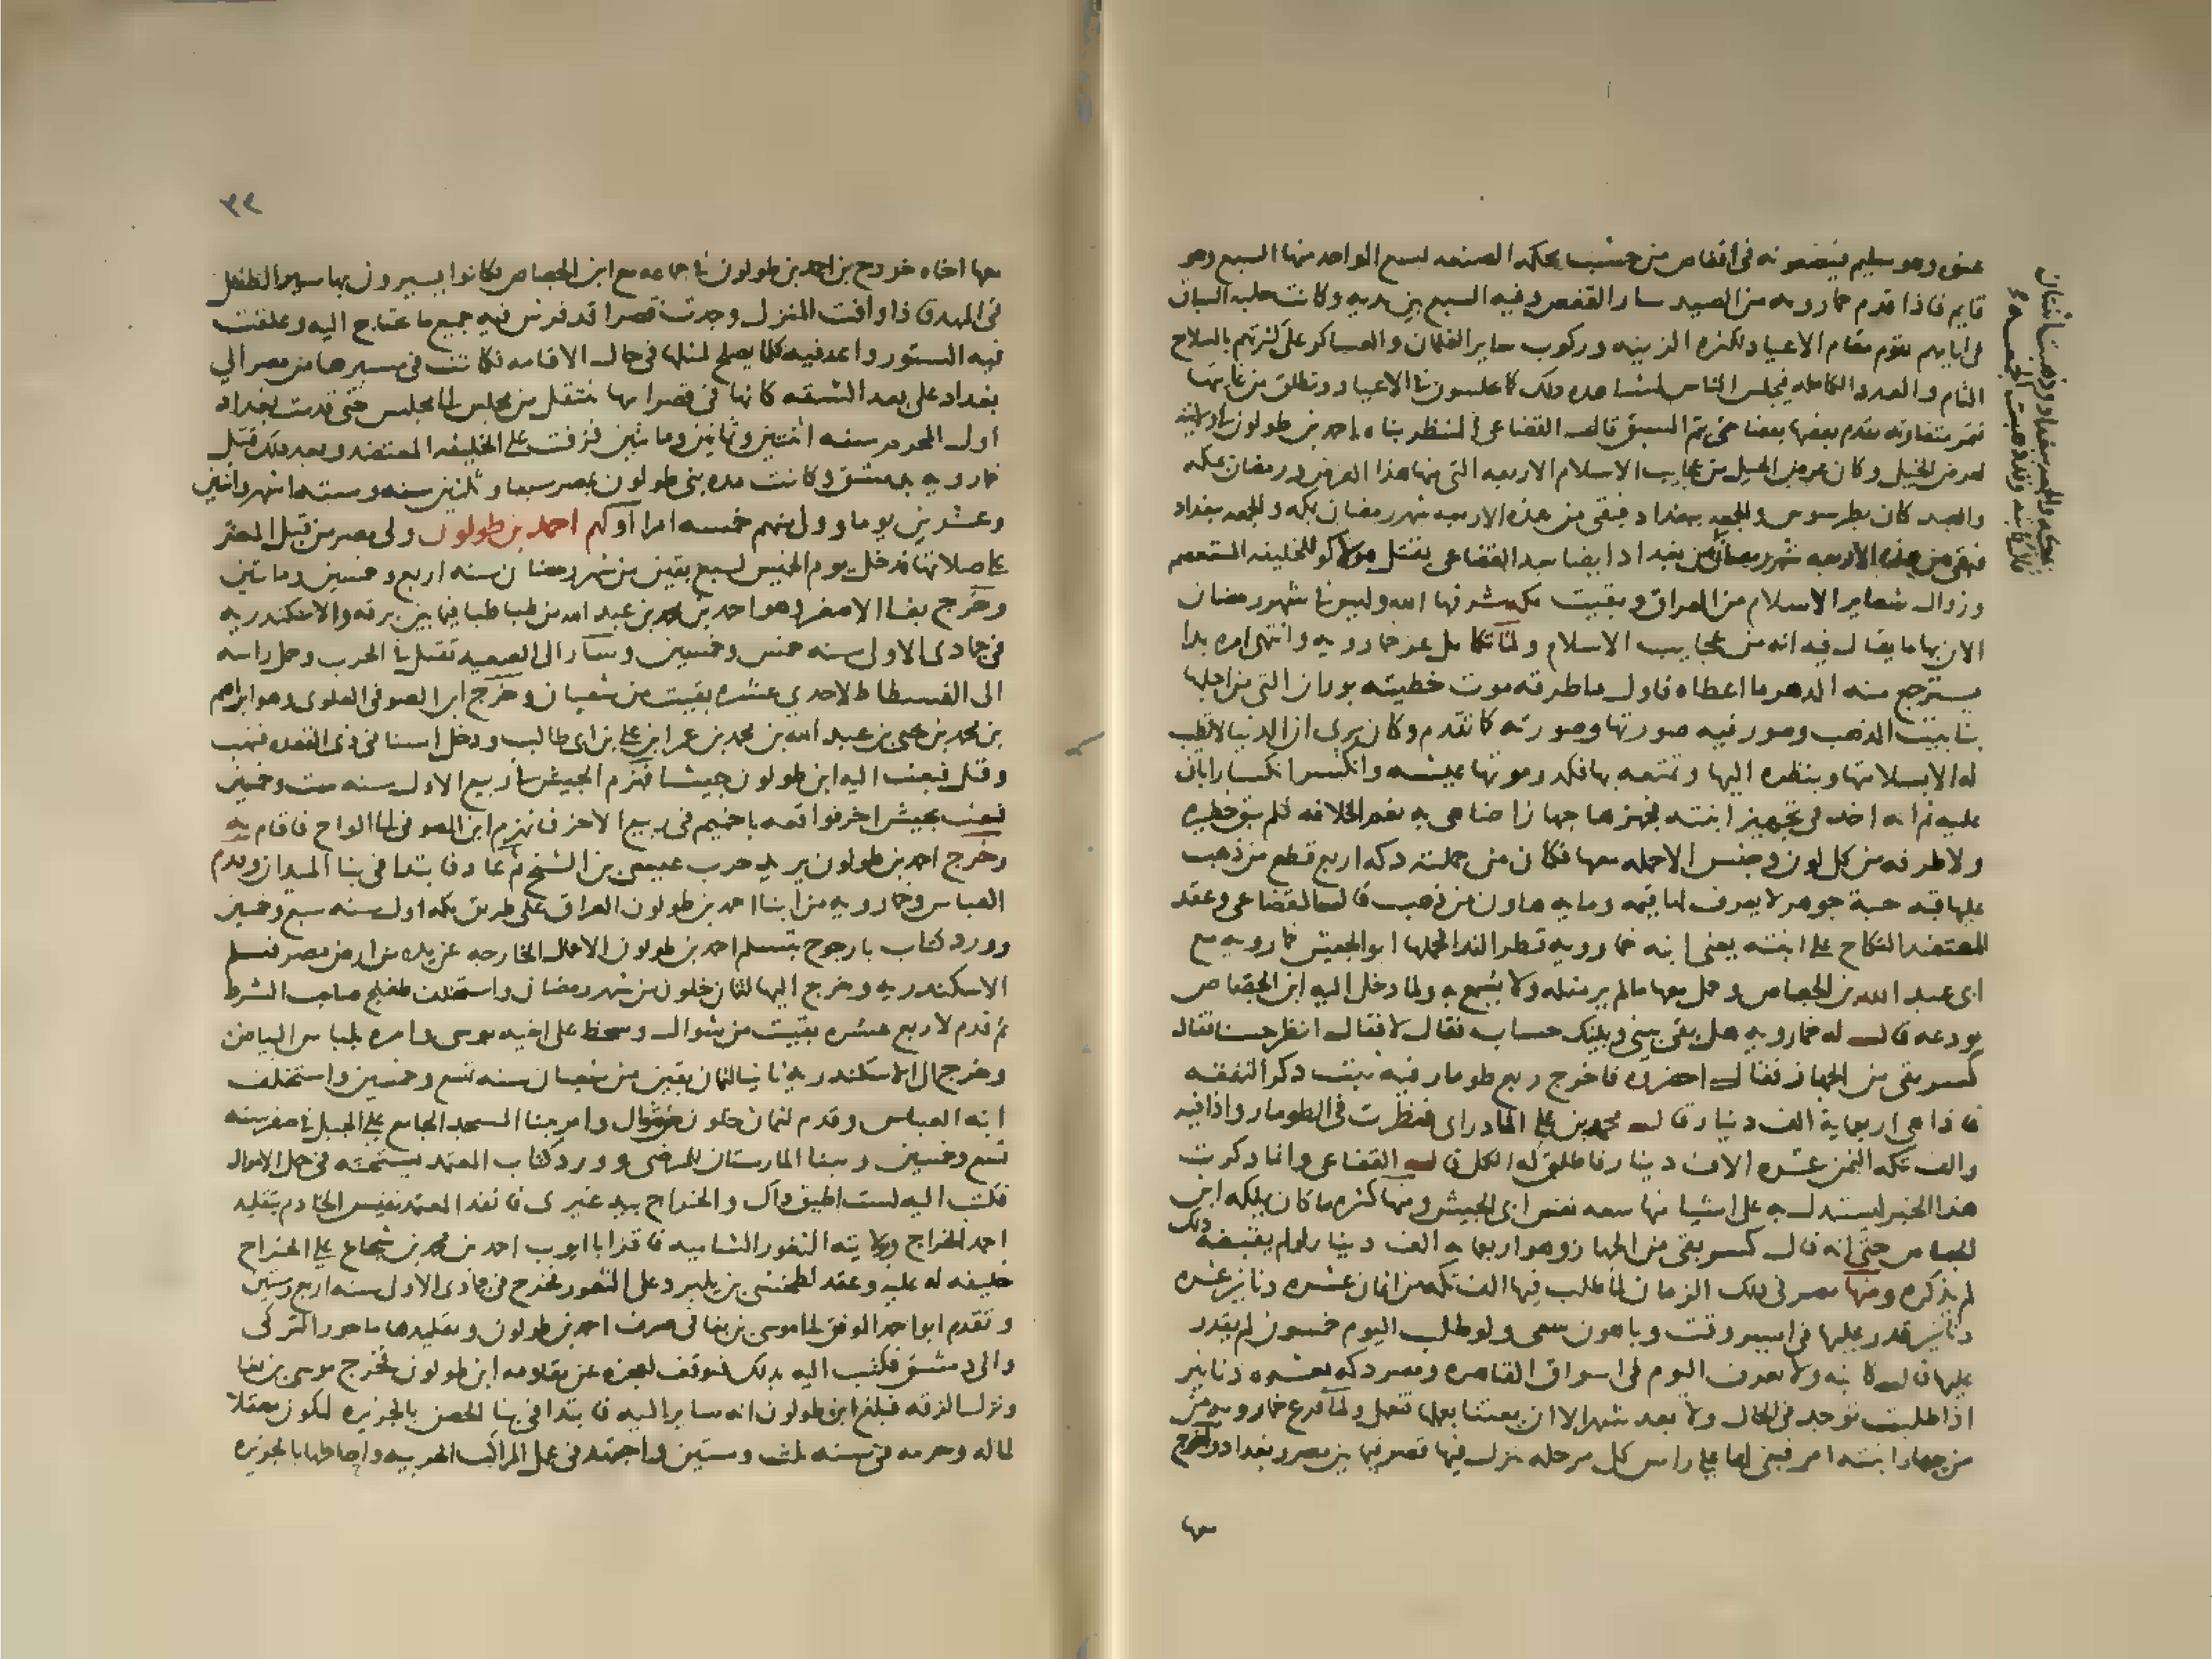 عنق وهو سليم فيضعونه فى اقفاص من خشب محكمه الصنعه لسع الواحد منها السبع وهو
قايم فاذا قدم خمارويه من الصيد سار القفص وفيه السبع بين يديه وكانت حلبه السباق
فى ايامهم تقوم مقام الاعياد لكثره الزينه وركوب ساير الغلمان والعساكر على كثرتهم بالسلاح
التام والعدد الكامله فيجلس الناس لمشاهده ذلك كما يجلسون فى الاعياد وتطلق من غايتها
فتمر متفاوته يقدم بعضها بعضا حتى يتم السبق قال القضاعى المنظر بناه احمد بن طولون
لعرض الخيل وكان عرض الخيل من عجايب الاسلام الاربعه التى منها هذا العرض ورمضان بمكه
والعيد كان بطرسوس والجمعه ببغداد فبقى من هذه الاربعه شهر رمضان بمكه والجمعه ببغداد
بمكه والجمعه ببغداد وذهبت اثنتان
قال كاتبه وقد ذهبت الجمعه
فبقى من هذه الاربعه شهر رمضان من بغداد ايضا بعد القضاعى بقتل هولاكو للخليفه المستعصم
وزوال شعاير الاسلام من العراق وبقيت مكه شرفها الله وليس فى شهر رمضان
الان بها ما يقال فيه انه من عجايب الاسلام ولما تكامل عز خمارويه وانتهى امره بدا
يسترجع منه الدهر ما اعطاه فاول ما طرقه موت حظيته بوران التى من اجلها
بنا بيت الذهب وصور فيه صورتها وصورته كما تقدم وكان يرى ان الدنيا لا تطيب
له الا بسلامتها وبنظره اليها وتمتعه بها فكدر موتها عيشه وانكسر انكسارا بان
عليه ثم انه اخذ فى تجهيز ابنته فجهزها جهازا ضاهى به نعم الخلافه فلم يبق خطيره
ولا طرفه من كل لون وجنس الا حمله معها فكان من جملته دكه اربع قطع من ذهب
عليها قبه
حبة جوهر لا يعرف لها قيمه ومايه هاون من ذهب قال القضاعى وعقد
المعتضد النكاح على ابنته يعنى ابنه خمارويه قطر الندا فحملها ابو الجيش خمارويه مع
ابى عبد الله بن الجصاص وحمل معها ما لم ير مثله ولا يسمع به ولما دخل اليه ابن الجصاص
يودعه قال له خمارويه هل بقى بينى وبينك حساب فقال لا فقال انظر حسنا فقال
كسر بقى من الجهاز فقال احضره فاخرج ربع طومار فيه ثبت ذكر النفقه
فاذا هى اربعماية الف دينار قال محمد بن على المادراى فنظرت فى الطومار واذا فيه
والف تكه الثمن عشره الاف دينار فاطلق له الكل قال القضاعى وانما ذكرت
هذا الخبر ليستدل به على اشيا منها سعه نفس ابى الجيش ومنها كثره ما كان يملكه ابن
الجصاص حتى انه قال كسر بقى من الجهاز وهو اربعمايه الف دينار لو لم يقتضه ذلك
لم يذكره ومنها مصر فى ذلك الزمان لما طلب فيها الف تكه من اثمان عشره دنانير عشره
دنانير قدر عليها فى ايسر وقت وباهون سعى ولو طلب اليوم خمسون لم يقدر
عليها قال كاتبه ولا يعرف اليوم فى اسواق القاهره ومصر تكه بعشره دنانير
اذا طلبت توجد فى الحال ولا بعد شهر الا ان يعتنا بعملها تعمل ولما فرغ خمارويه من
من جهاز ابنته امر فبنى لها على راس كل مرحله تنزل فيها قصر فيما بين مصر وبغداد واخرج
معها
٣٢
معها اخاه خزرج بن احمد بن طولون فى جماعه مع ابن الجصاص فكانوا يسيرون بها سير الطفل
فى المهد فاذا وافت المنزل وجدت قصرا قد فرش فيه جميع ما تحتاج اليه وعلقت
فيه الستور واعد فيه كلما يصلح لمثلها فى حال الاقامه فكانت فى مسيرها من مصر الى
بغداد على بعد الشقه كانها فى قصر ابيها تنتقل من مجلس الى مجلس حتى قدمت بغداد
اول المحرم سنه اثنتين وثمانين ومائتين فزفت على الخليفه المعتضد وبعد ذلك قتل
خمارويه بدمشق وكانت مده بنى طولون بمصر سبعا وثلاثين سنه وسته اشهر واثنين
وعشرين يوما وولى منهم خمسه امرا اولهم احمد بن طولون ولى مصر من قبل المعتز
على صلاتها فدخل يوم الخميس لسبع بقين من شهر رمضان سنه اربع وخمسين ومائتين
وخرج بغا الاصغر وهو احمد بن محمد بن عبد الله بن طباطبا فيما بين برقه والاسكندريه
فى جمادى الاولى سنه خمس وخمسين وسار الى الصعيد فقتل فى الحرب وحمل راسه
الى الفسطاط لاحدى عشره بقيت من شعبان وخرج ابن الصوفى العلوى وهو ابراهيم
بن محمد بن يحيى بن عبد الله بن محمد بن عمر ابن على بن ابى طالب ودخل اسنا فى ذى القعده فنهب
وقتل فبعث اليه ابن طولون جيشا فهزم الجيش فى ربيع الاول سنه ست وخمسين
فبعث بجيش اخر فواقعه باخميم فى ربيع الاخر فانهزم ابن الصوفى الى الواح فاقام به
وخرج احمد بن طولون يريد حرب عيسى بن الشيخ ثم عاد فابتدا فى بنا الميدان وقدم
العباس وخمارويه من ابنا احمد بن طولون العراق على طريق مكه اول سنه سبع وخمسين
وورد كتاب يارجوح بتسلم احمد بن طولون الاعمال الخارجه عن يده من ارض مصر فتسلم
الاسكندريه وخرج اليها لثمان خلون من شهر رمضان واستخلف طغلج صاحب الشرط
ثم قدم لاربع عشره بقيت من شوال وسخط على اخيه موسى وامره بلباس البياض
وخرج الى الاسكندريه ثانيا لثمان بقين من شعبان سنه تسع وخمسين واستخلف
ابنه العباس وقدم لثمان خلون من شوال وامر ببنا المسجد الجامع على الجبل فى صفر سنه
تسع وخمسين وببنا المارستان للمرضى وورد كتاب المعتمد يستحثه فى حمل الاموال
فكتب اليه لست اطيق ذاك والخراج بيد غيرى فانفذ المعتمد نفيس الخادم بتقليد
احمد الخراج وولايته الثغور الشاميه فاقر ابا ايوب احمد بن محمد بن شجاع على الخراج
خليفه له عليه وعقد لطخشى بن بلبرد على الثغور فخرج فى جمادى الاولى سنه اربع وستين
وتقدم ابو احمد الموفق الى موسى بن بغا فى صرف احمد بن طولون وتقليدها ماحور التركى
والى دمشق فكتب اليه بذلك فتوقف لعجزه عن مقاومه ابن طولون فخرج موسى بن بغا
ونزل الرقه فبلغ ابن طولون انه ساير اليه فابتدا فى بنا الحصن بالجزيره ليكون معقلا
لماله وحرمه فى سنه ثلث وستين واجتهد فى عمل المراكب الحربيه واحاطها بالجزيره